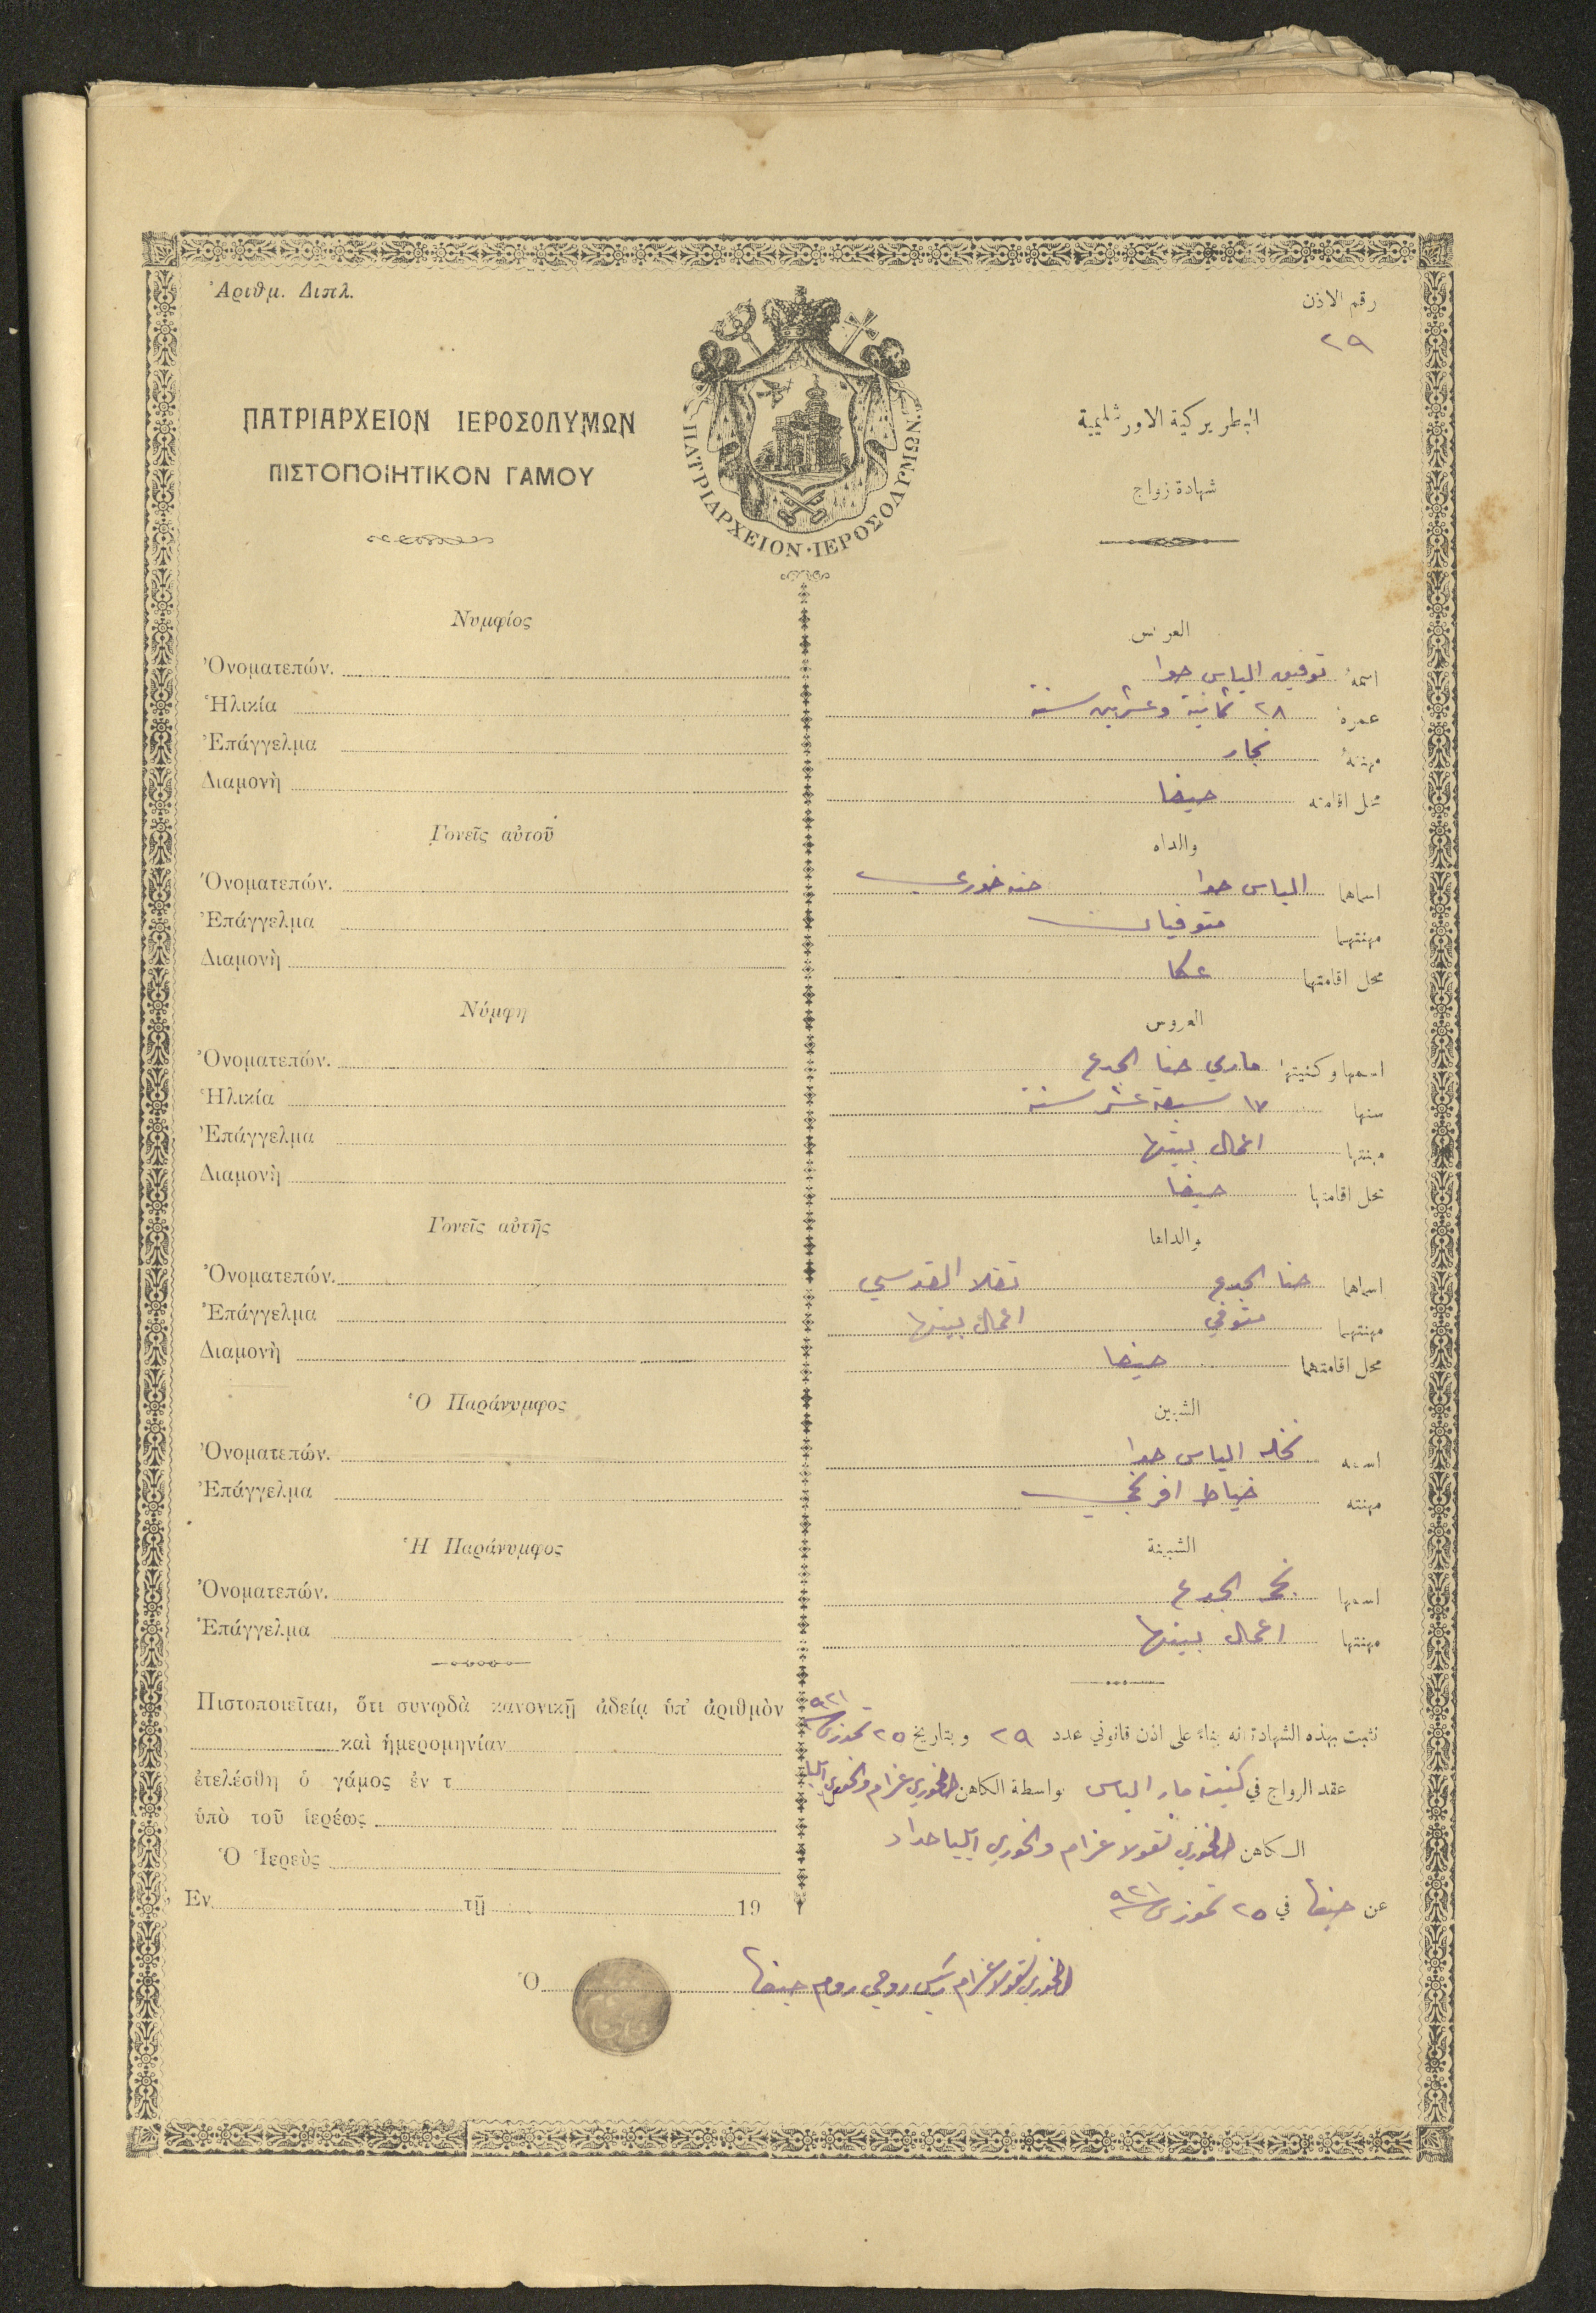 Ἀριθμ. Διπλ.
رقم الاذن
٢٩
ΠΑΤΡΙΑΡΧΕΙΟΝ ΙΕΡΟΣΟΛΥΜΩΝ
ΠΙΣΤΟΠΟΙΗΤΙΚΟΝ ΓΑΜΟΥ
ΠΑΤΡΙΑΡΧΕΙΟΝ·ΙΕΡΟΣΟΛΥΜΩΝ
البطريركية الاورشليمية
شهادة زواج
Νυμφίος
Ὀνοματεπών.
Ἡλικία
Ἐπάγγελμα
Διαμονὴ
Γονεῖς αὐτοῦ
Ὀνοματεπών.
Ἐπάγγελμα
Διαμονὴ
Νύμφη
Ὀνοματεπών.
Ἡλικία
Ἐπάγγελμα
Διαμονὴ
Γονεῖς αὐτῆς
Ὀνοματεπών.
Ἐπάγγελμα
Διαμονὴ
Ὁ Παράνυμφος
Ὀνοματεπών.
Ἐπάγγελμα
Ἡ Παράνυμφος
Ὀνοματεπών.
Ἐπάγγελμα
Πιστοποιεῖται, ὅτι συνῳδὰ κανονικῇ ἀδείᾳ ὑπ' ἀριθμὸν
καὶ ἡμερομηνίαν
ἐτελέσθη ὁ γάμος ἐν τ
ὑπὸ τοῦ ἱερέως
Ὁ Ἱερεὺς
Ἐν τῇ 19
Ὁ
العريس
اسمهُ توفيق الياس حوا
عمرهُ ٢٨ ثمانية وعشرين سنة
مهنتهُ نجار
محل اقامته حيفا
والداه
اسماهما الياس حوا حنه خوري
مهنتهما متوفيان
محل اقامتهما عكا
العروس
اسمها وكنيتها ماري حنا الجدع
سنها ١٧ سبعة عشر سنة
مهنتها اعمال بيتها
محل اقامتها حيفا
والداها
اسماهما حنا الجدع تقلا القدسي
مهنتهما متوفي اعمال بيتها
محل اقامتهما حيفا
الشبين
اسمه نخله الياس حوا
مهنته خياط افرنجي
الشبينة
اسمها الجدع
مهنتها اعمال بيتها
نثبت بهذه الشهادة انه بناءً على اذن قانوني عدد ٢٩ وبتاريخ ٢٥ تموز سنة ٩٢١
عقد الزواج في كنيسة مار الياس بواسطة الكاهن الخوري عزام والخوري ايليا
الكاهن الخوري نقولا عزام والخوري ايليا حداد
عن حيفا في ٢٥ تموز سنة ٩٢١
الخوري نقولا عزام رئيس روحي روم حيفا